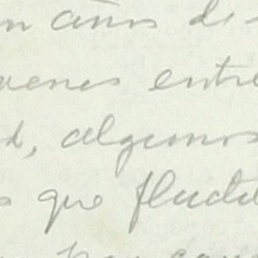 n años de
venes entre
d, algunos
s que fluctú